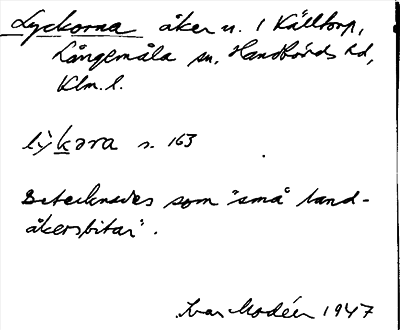 Lyckorna åker n. 1 Källtorp,
Långemåla sn, Handbörds hd,
Klm. l.
lỳkəra s. 163
Betecknades som "små land-
åkersbitar".
Ivar Modéer 1947